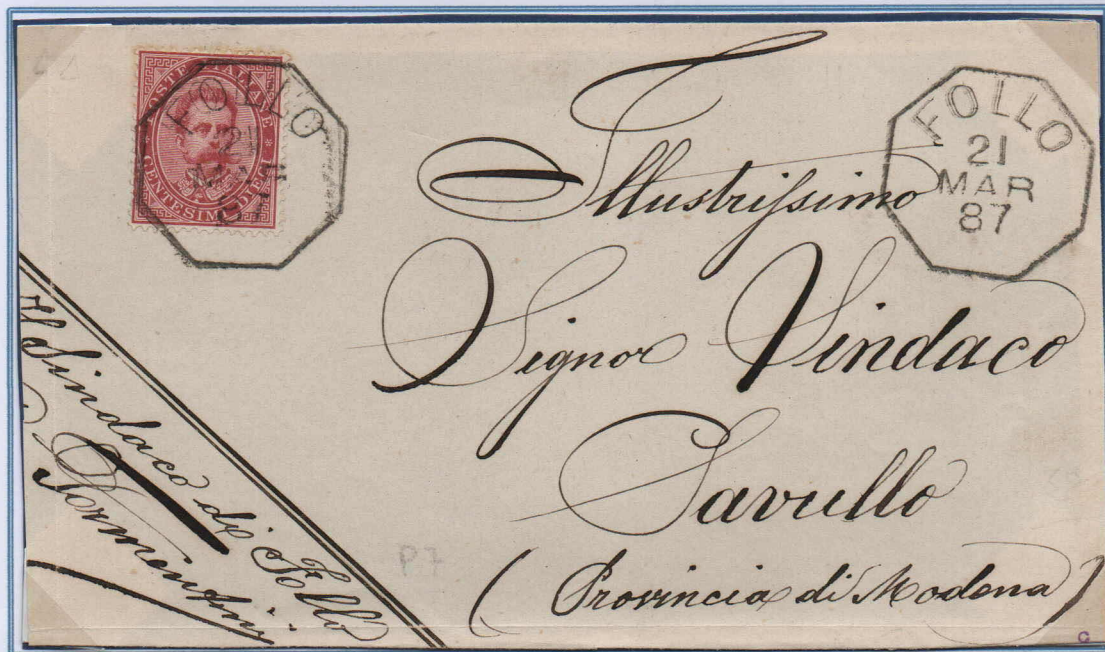 POSTE ITALIANE
CENTESIMI DIECI
FOLLO
21
MAR
FOLLO
21
MAR
87
Illustrissimo
Signor Sindaco
Pavullo
(Provincia di Modena)
Il Sindaco di Follo
Formentini
P7
C